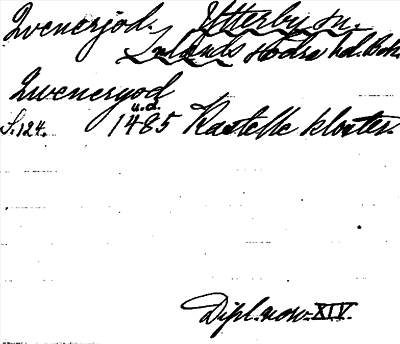 Qvenerjöd. Ytterby sn.
Inlands Södra hd. Boh.
Quenergod
u.d.
S. 124. 1485 Kastelle kloster.
Dipl. norv. XIV.